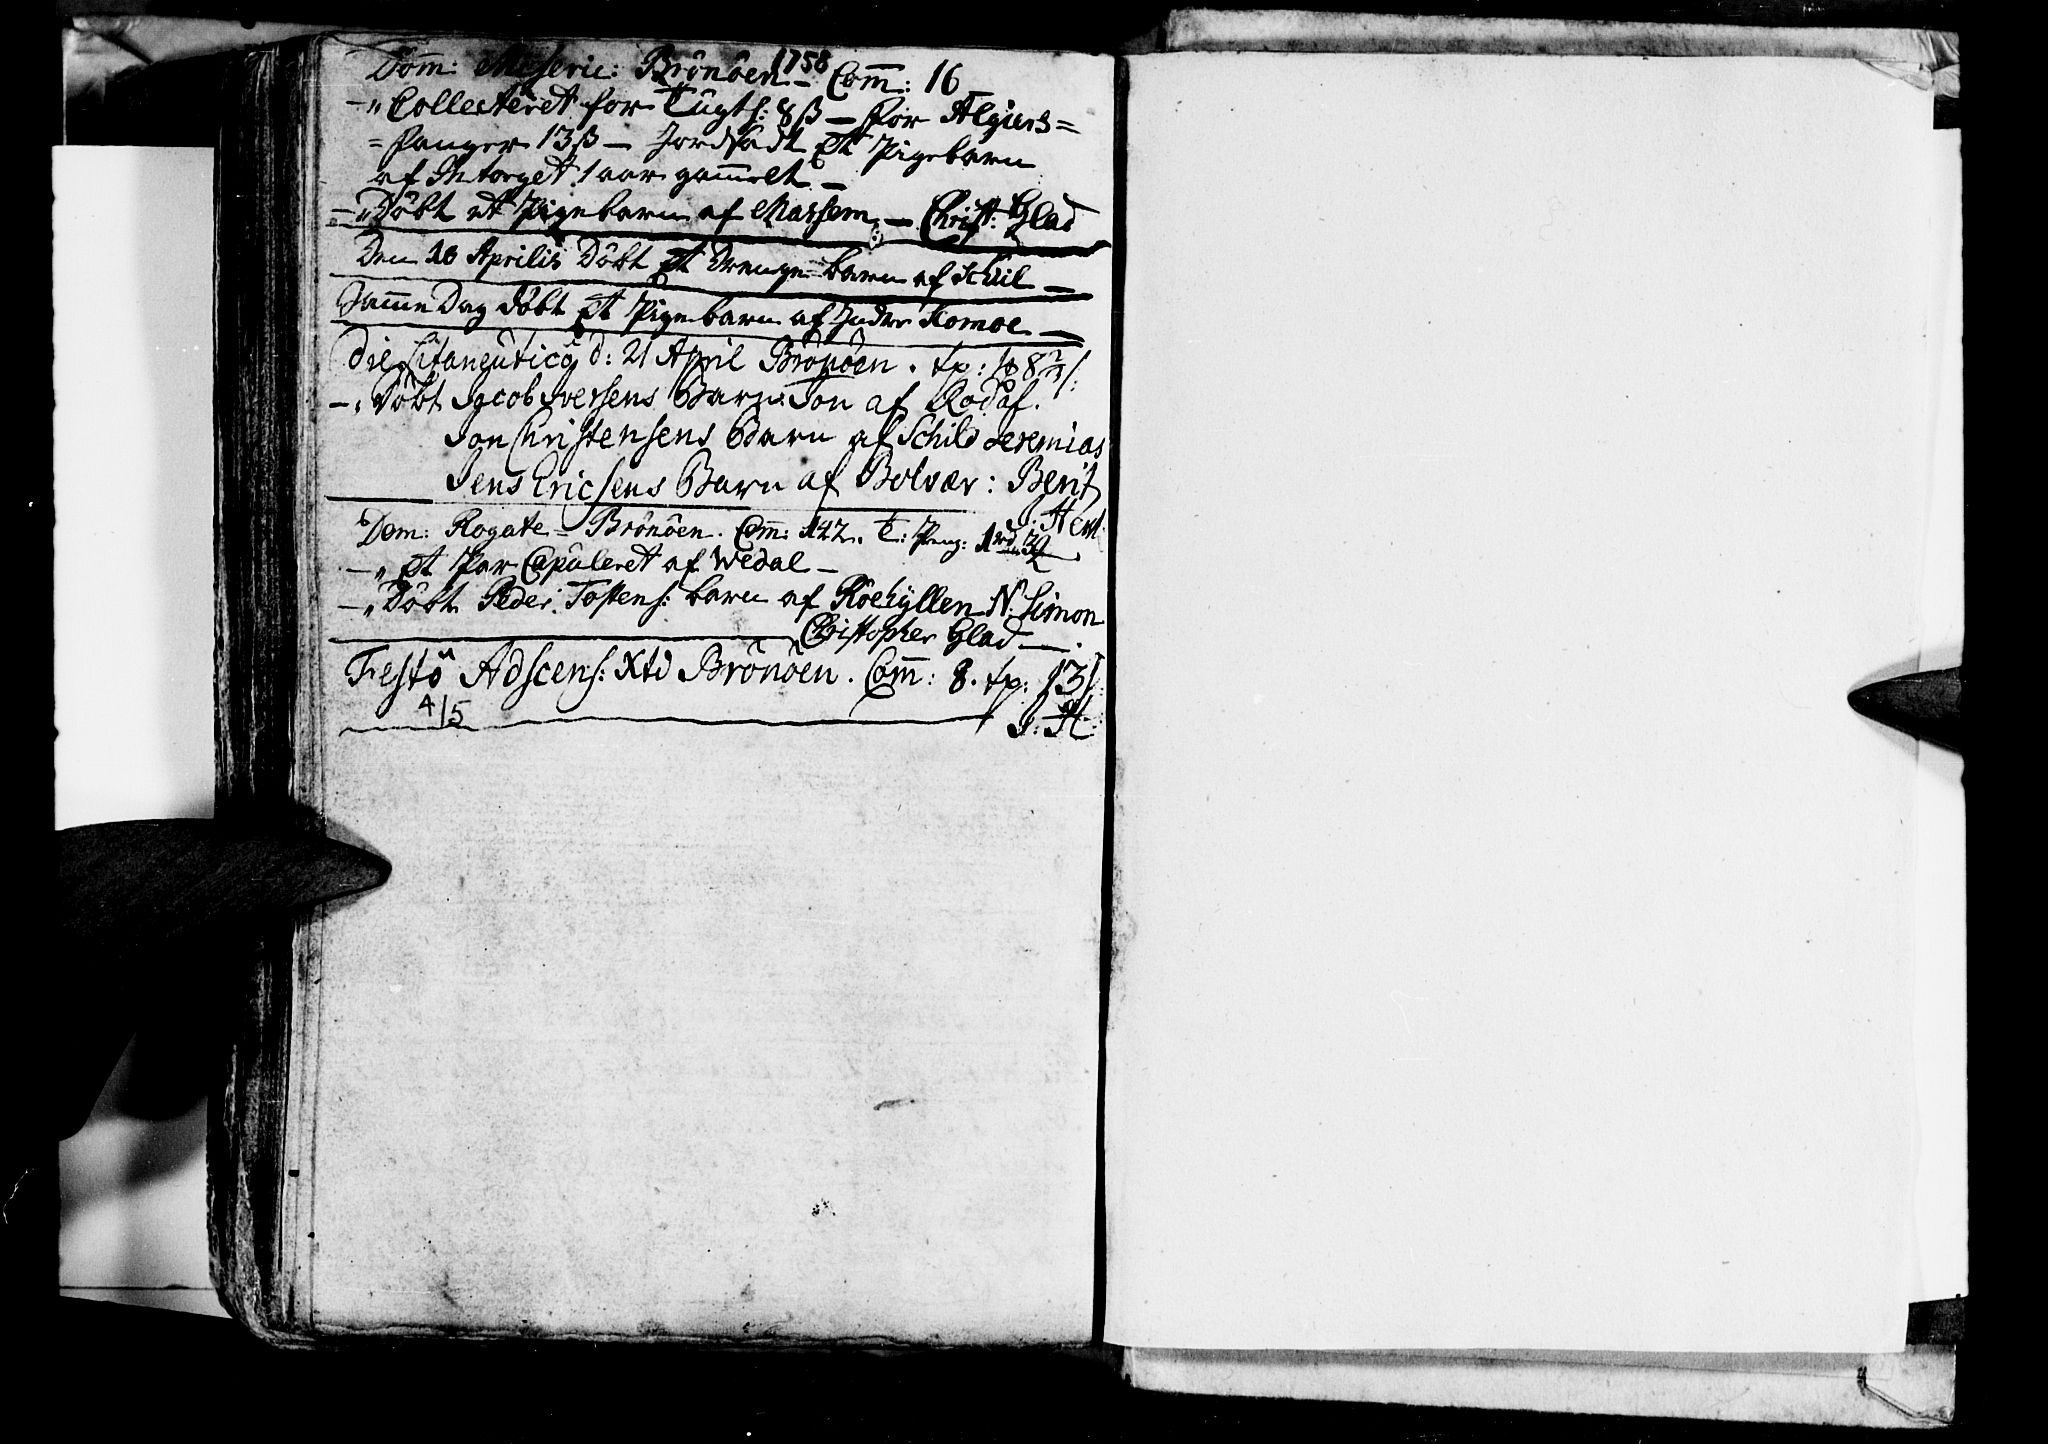 1758
Dom: Miseric: Brönöen - Com̄: 16
-" Collecteret for Tugth: 8ß - for Algiers=
=fanger 13ß - Jordfæst Et Pigebarn
af Intorget 1 aar gam̄elt -
-" Döbt et Pigebarn af Marsem - Christ: Glad
Den 18 Aprilis Döbt Et Drenge-barn af Schiil -
Sam̄e Dag döbt Et Pigebarn af Indre Komoe -
Die Litaneutico d: 21 April Brönöen. tp:
-" Döbt Jacob Iversens Barn: Jon af Rodøf.
Jon Christensens Barn af Schild Jeremias
Jens Ericsens Barn af Bolvær: Berit
J: Hert
Dom: Rogate - Brönöen. Com̄: 142. T: Peng: 1 rd
-" Et Par Copuleret af Wedal -
-" Döbt Peder Tostens: barn af Röehyllen N: Simon
Christopher Glad -
Festo Adscens: Xti Brönöen. Com̄: 8. tp: 13
4/5
J: H: